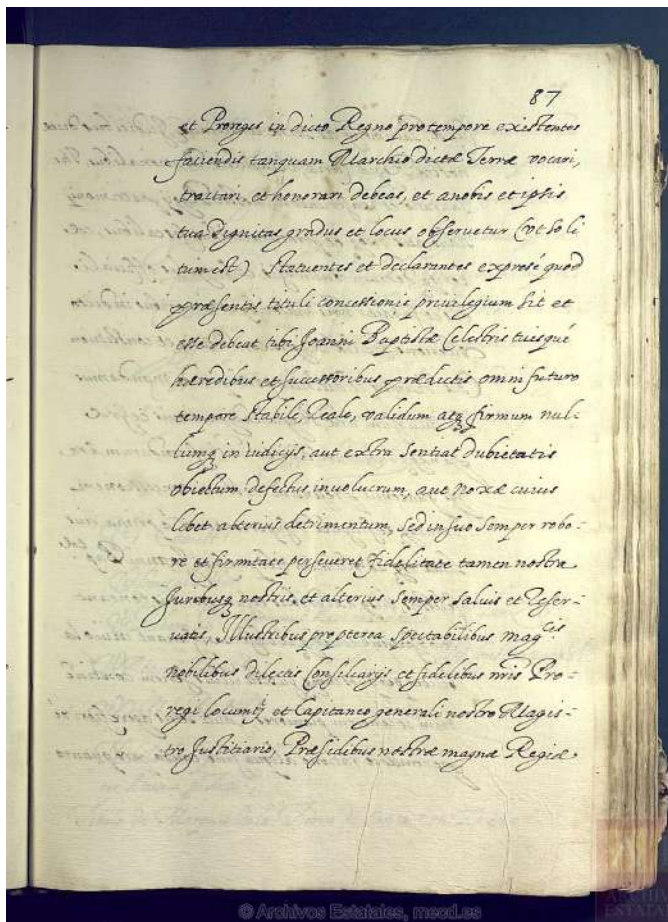 87
et Proreges in dicto Regno pro tempore existentes
faciendis tanquam Marchio dictæ Terræ vocari,
tractari, et honorari debeas, et a nobis et ipsis
tua dignitas gradus et locus observetur (vt soli
tum est) Statuentes et declarantes expresé quod
præsentis tituli concessionis privilegium sit et
esse debeat tibi Joanni Baptistæ Celestris tuisqué
hæredibus et successoribus prædictis omni futuro
tempore stabile, reale, validum atq firmum nul-
liumq in iudicijs, aut extra sentiat dubietatis
obiectum, defectus involucrum, aut noxæ cuius
libet alterius detrimentum, sed in suo semper robo-
re et firmitate perseveret fidelitate tamen nostra
Juribusq nostris, et alterius semper salvis et reser-
vatis, Illustribus propterea spectabilibus mag.cis
nobilibus dilectis Consiliarijs et fidelibus nris Pro-
regi locumtj et Capitaneo generali nostro Magis-
tro Justitiario, Præsidibus nostræ magnæ Regiæ
© Archivos Estatales, mecd.es